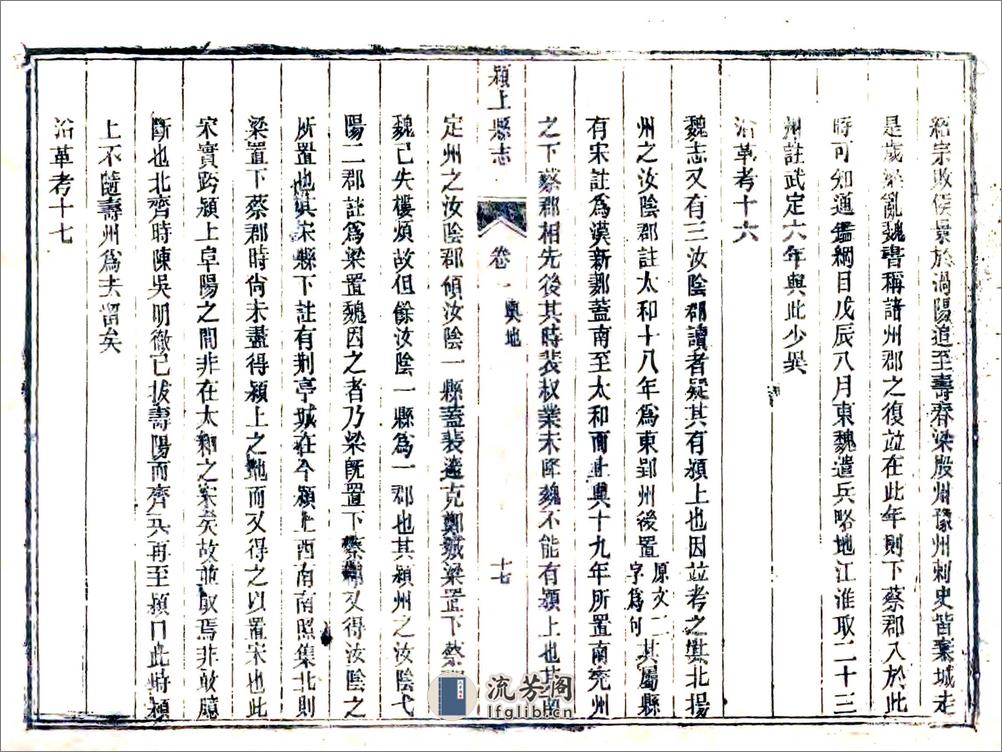 紹宗敗侯景於渦陽追至壽春梁殷州豫州刺史皆棄城走
是歲梁亂魏書稱諸州郡之復並在此年則下蔡郡入於此
時可知通鑑綱目戊辰八月東魏遣兵略地江淮取二十三
州註武定六年與此少異
沿革考十六
魏志又有三汝陰郡讀者疑其有潁上也因並考之其北揚
州之汝陰郡註太和十八年為東郢州後置原文二字為句其屬縣
有宋註為漢新郪蓋南至太和而止與十九年所置南兖州
之下蔡郡相先後其時裴叔業未降魏不能有潁上也其
潁上縣志
卷一
輿地
十七
定州之汝陰郡領汝陰一縣蓋裴邃克鄭城梁置下蔡
魏已失樓煩故但餘汝陰一縣為一郡也其潁州之汝陰弋
陽二郡註為梁置魏因之者乃梁既置下蔡又得汝陰之
所置也其宋縣下註有荆亭城在今潁上西南南照集北則
梁置下蔡郡時尚未盡得潁上之地而又得之以置宋也此
宋實跨潁上阜陽之間非在太和之宋矣故並取焉非敢臆
斷也北齊時陳吳明徹已拔壽陽而齊兵再至潁口此時潁
上不隨壽州為去留矣
沿革考十七
流芳阁
lfglib.cn